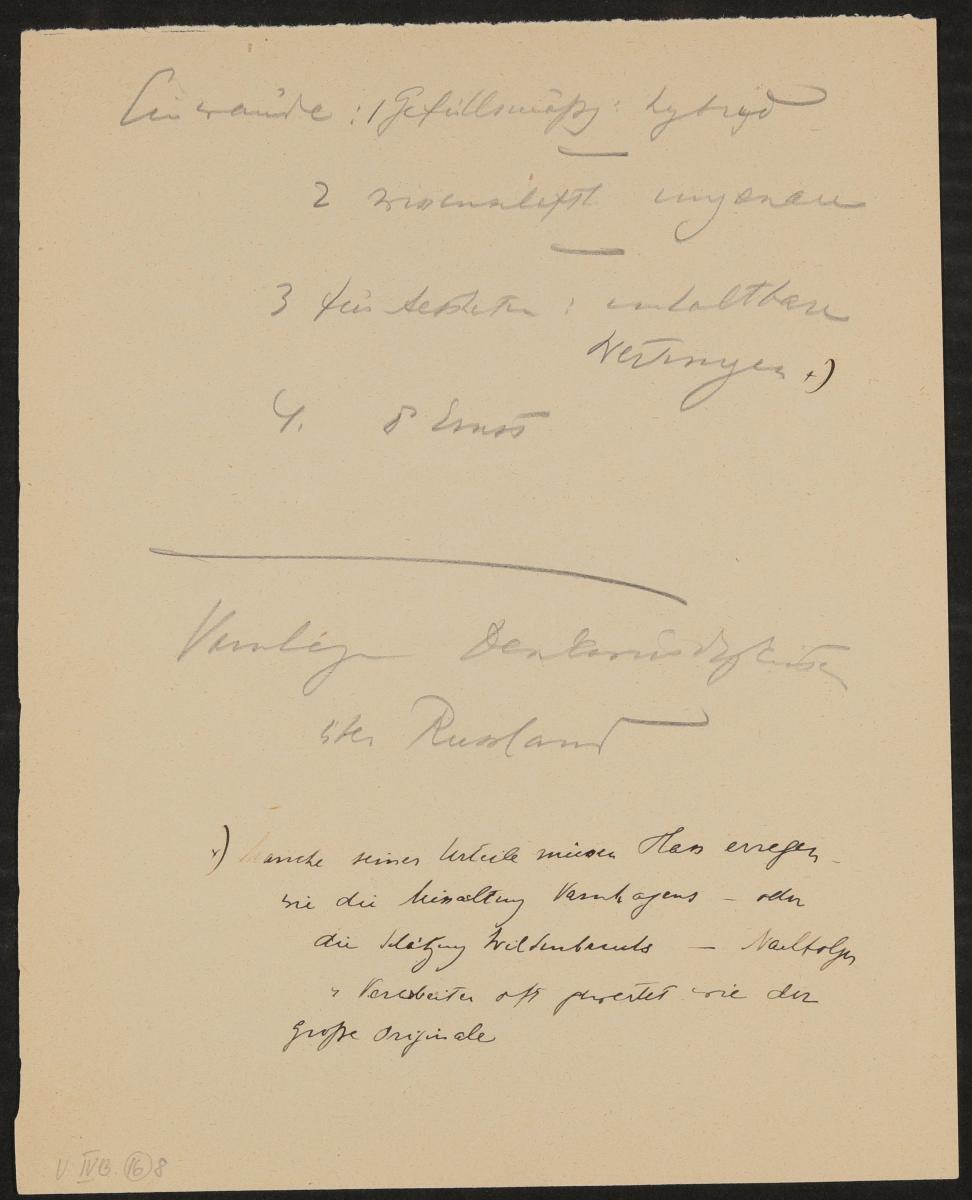 Einwände : 1 Gefühlsmäßig : hybrid
2 wissenschaftl ungenau
3 für Aestheten : unhaltbare
Wertungen +)
4. Ernst
Varnhagen Denkwürdigkeiten
über Russland
x) Manche seiner Urteile müssen Hass erregen –
wie die Varnhagens – oder
die Schätzung Wildenbruchs – Nachfolger
u Verarbeiter oft gewertet wie der
große Originale
V IVB (16) 8